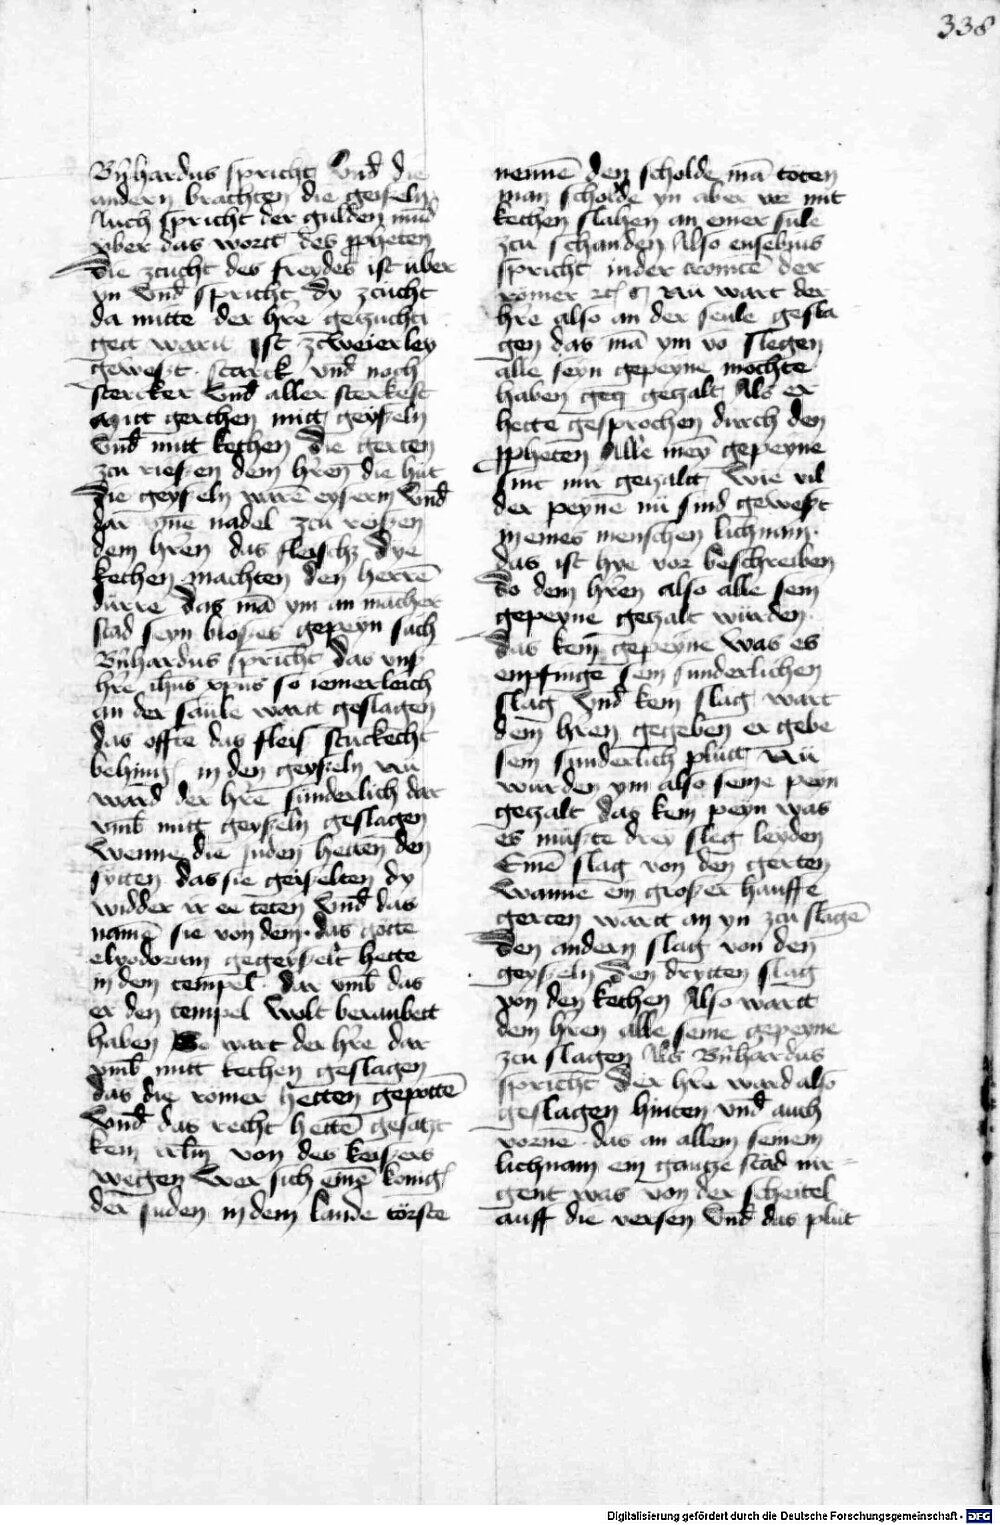 338
Bn̄hardus spricht Vnd die
andern brachten die geiseln
Auch spricht der gulden mūd
vber das wortt des ꝓpheten
Die zcucht des freydes ist uber
yn Vnd spricht dy zcucht
da mitte der h're gezuchti
get wartt Ist zcweierley
gewest starck vnd noch
stercker Vnd aller sterkest
Mitt gerthen mitt geyseln
Vnd mitt kethen Die gerten
zcu riesen dem h'ren die hut
Die geyseln warē eysern Vnd
dar ynē nadel zcu reisen
dem h'ren das fleischz Dye
kethen machten den herrē
durre das mā ym an macher
stad seyn bloses gepeyn sach
Bn̄hardus spricht das vns
h're ih'us xp̄us so iemerleich
an der saule wartt geslagen
das offte das fleis stuckecht
behing in den geyseln Nu
ward der h're sunderlich dar
vmb mitt geyseln geslagen
Wenne die juden hetten den
sytten das sie geiselten dy
widder ir ee teten Vnd das
namē sie von dem das gotte
elyodorum gegeyselt hette
in dem tempel dar vmb das
er den tempel wolt beraubett
haben So wart der h're dar
vmb mitt kethen geslagen
das die romer hetten gepottē
Vnd das recht hettē gesatzt
kem von des keisers
wegen Wer sich einē konig
der juden in dem lande torste
nennē den scholde mā toten
man scholde yn aber vor mit
kethen slahen an einer sule
zcu schanden Also eusebius
spricht in der cronicē der
romer Nu wart der
h're also an der seule gesla
gen das mā ym vō slegen
alle seyn gepeyne mochte
haben gezalt Als er
hette gesprochen durch den
ꝓpheten Alle mey gepeyne
sint mir gezaltt Wie vil
der peyne nu sind gewest
in eines menschen lichnam
das ist hye vor beschreiben
Do dem h'ren also alle sein
gepeyne gezalt wurden
Das kein gepeyne was es
enpfinge sein sunderlichen
slag Vnd kein slag wart
dem h'ren gegeben er gebe
sein sunderlich plutt Nu
wurden ym also seine peyn
gezalt das kein peyn was
es muste drey sleg leyden
Einē slag von den gerten
Wanne ein groser hauffe
gerten wartt an yn zcu slagē
Den andern slag von den
geyseln Den drytten slag
von den kethen Also wartt
dem h'ren alle seine gepeyne
zcu slagen Als Bn̄hardus
spricht Der h're ward also
geslagen hinten vnd auch
vorne das an allem seinem
lichnam ein gancze stad nir=
gent was von der scheitel
auff die versen Vnd das plut
Digitalisierung gefördert durch die Deutsche Forschungsgemeinschaft - DFG